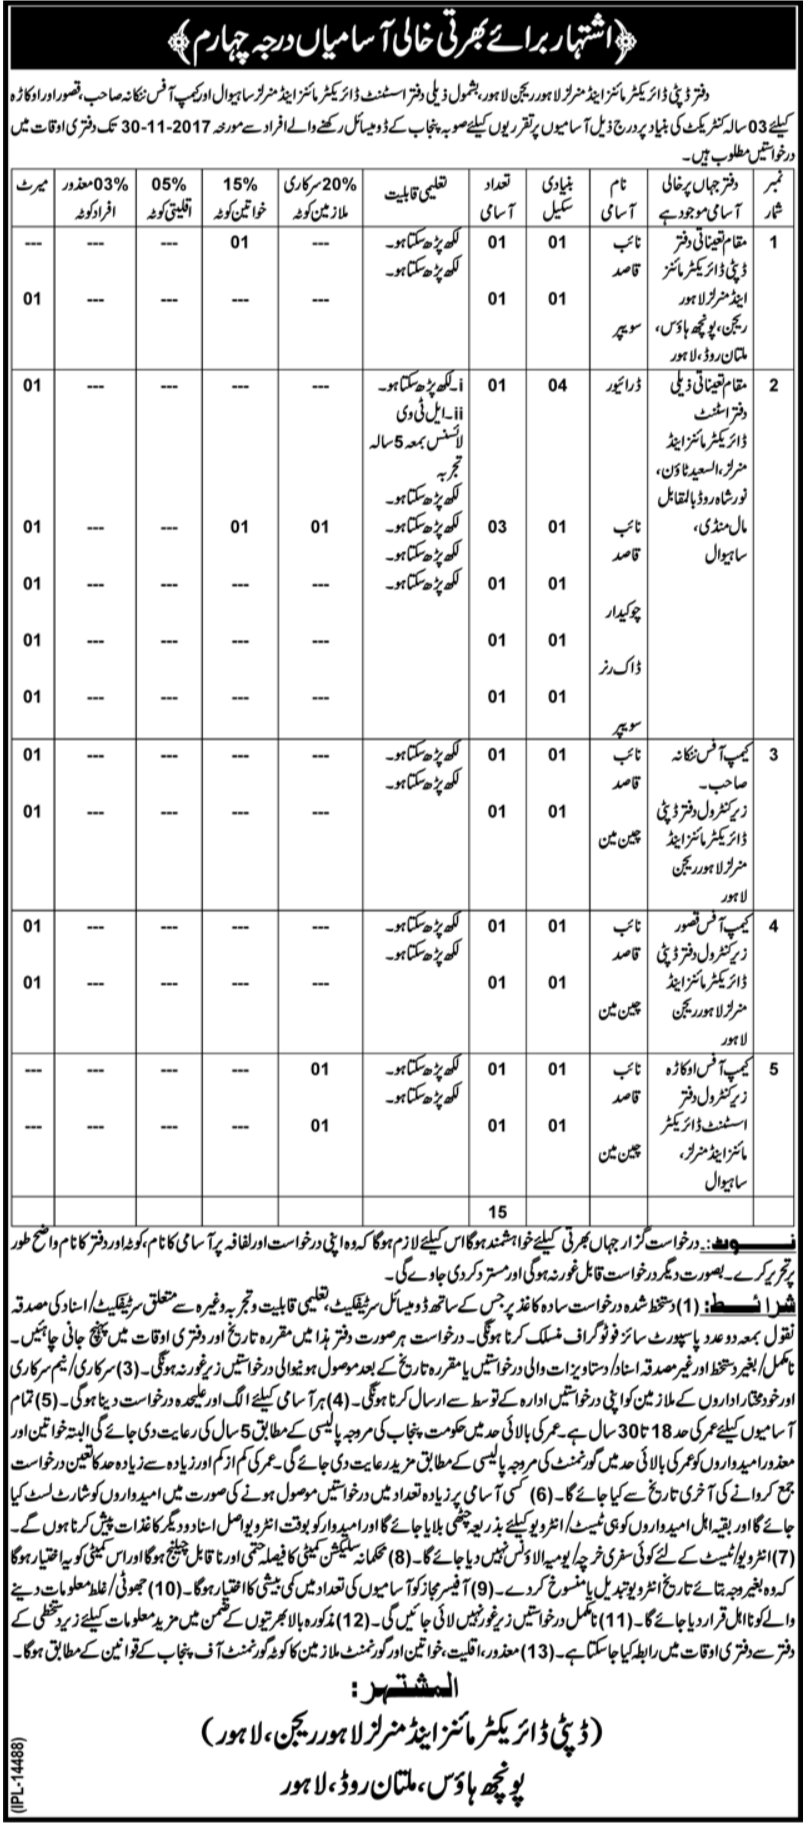 ﴿اشتہار برائے بھرتی خالی آسامیاں درجہ چہارم﴾
دفتر ڈپٹی ڈائریکٹر مائنز اینڈ منرلز لاہور ریجن لاہور، بشمول ذیلی دفتر اسٹنٹ ڈائریکٹر مائنز اینڈ منرلز ساہیوال اور کیمپ آفس ننکانہ صاحب، قصور اور اوکاڑہ
کیلئے 03 سالہ کنٹریکٹ کی بنیاد پر درج ذیل آسامیوں پر تقرریوں کیلئے صوبہ پنجاب کے ڈومیسائل رکھنے والے افراد سے مورخہ 30-11-2017 تک دفتری اوقات میں
درخواستیں مطلوب ہیں۔
نمبر شمار | دفتر جہاں پر خالی آسامی موجود ہے | نام آسامی | بنیادی سکیل | تعداد آسامی | تعلیمی قابلیت | 20% سرکاری ملازمین کوٹہ | 15% خواتین کوٹہ | 05% اقلیتی کوٹہ | 03% معذور افراد کوٹہ | میرٹ
1 | مقام تعیناتی دفتر ڈپٹی ڈائریکٹر مائنز اینڈ منرلز لاہور ریجن، پونچھ ہاؤس، ملتان روڈ، لاہور | نائب قاصد | 01 | 01 | لکھ پڑھ سکتا ہو۔ | --- | 01 | --- | --- | ---
سویپر | 01 | 01 | لکھ پڑھ سکتا ہو۔ | --- | --- | --- | --- | 01
2 | مقام تعیناتی ذیلی دفتر اسٹنٹ ڈائریکٹر مائنز اینڈ منرلز، السعید ٹاؤن، نور شاہ روڈ بالمقابل مال منڈی، ساہیوال | ڈرائیور | 04 | 01 | i۔ لکھ پڑھ سکتا ہو۔ ii۔ ایل ٹی وی لائسنس بمعہ 5 سالہ تجربہ | --- | --- | --- | --- | 01
نائب قاصد | 01 | 03 | لکھ پڑھ سکتا ہو۔ | 01 | 01 | --- | --- | 01
چوکیدار | 01 | 01 | لکھ پڑھ سکتا ہو۔ | --- | --- | --- | --- | 01
ڈاک رنر | 01 | 01 | لکھ پڑھ سکتا ہو۔ | --- | --- | --- | --- | 01
سویپر | 01 | 01 | لکھ پڑھ سکتا ہو۔ | --- | --- | --- | --- | 01
3 | کیمپ آفس ننکانہ صاحب۔ زیر کنٹرول دفتر ڈپٹی ڈائریکٹر مائنز اینڈ منرلز لاہور ریجن لاہور | نائب قاصد | 01 | 01 | لکھ پڑھ سکتا ہو۔ | --- | --- | --- | --- | 01
چین مین | 01 | 01 | لکھ پڑھ سکتا ہو۔ | --- | --- | --- | --- | 01
4 | کیمپ آفس قصور زیر کنٹرول دفتر ڈپٹی ڈائریکٹر مائنز اینڈ منرلز لاہور ریجن لاہور | نائب قاصد | 01 | 01 | لکھ پڑھ سکتا ہو۔ | --- | --- | --- | --- | 01
چین مین | 01 | 01 | لکھ پڑھ سکتا ہو۔ | --- | --- | --- | --- | 01
5 | کیمپ آفس اوکاڑہ زیر کنٹرول دفتر اسٹنٹ ڈائریکٹر مائنز اینڈ منرلز، ساہیوال | نائب قاصد | 01 | 01 | لکھ پڑھ سکتا ہو۔ | 01 | --- | --- | --- | ---
چین مین | 01 | 01 | لکھ پڑھ سکتا ہو۔ | 01 | --- | --- | --- | ---
15
نوٹ:۔ درخواست گزار جہاں بھرتی کیلئے خواہشمند ہوگا اس کیلئے لازم ہوگا کہ وہ اپنی درخواست اور لفافہ پر آسامی کا نام، کوٹہ اور دفتر کا نام واضح طور
پر تحریر کرے۔ بصورت دیگر درخواست قابل غور نہ ہوگی اور مسترد کردی جاوے گی۔
شرائط: (1) دستخط شدہ درخواست سادہ کاغذ پر جس کے ساتھ ڈومیسائل سرٹیفکیٹ، تعلیمی قابلیت و تجربہ وغیرہ سے متعلق سرٹیفکیٹ/اسناد کی مصدقہ
نقول بمعہ دو عدد پاسپورٹ سائز فوٹوگراف منسلک کرنا ہونگی۔ درخواست ہر صورت دفتر ہذا میں مقررہ تاریخ اور دفتری اوقات میں پہنچ جانی چائیں۔
نامکمل/بغیر دستخط اور غیر مصدقہ اسناد/دستاویزات والی درخواستیں یا مقررہ تاریخ کے بعد موصول ہونیوالی درخواستیں زیر غور نہ ہونگی۔ (3) سرکاری/نیم سرکاری
اور خود مختار اداروں کے ملازمین کو اپنی درخواستیں ادارہ کے توسط سے ارسال کرنا ہونگی۔ (4) ہر آسامی کیلئے الگ اور علیحدہ درخواست دینا ہوگی۔ (5) تمام
آسامیوں کیلئے عمر کی حد 18 تا 30 سال ہے۔ عمر کی بالائی حد میں حکومت پنجاب کی مروجہ پالیسی کے مطابق 5 سال کی رعایت دی جائے گی البتہ خواتین اور
معذور امیدواروں کو عمر کی بالائی حد میں گورنمنٹ کی مروجہ پالیسی کے مطابق مزید رعایت دی جائے گی۔ عمر کی کم از کم اور زیادہ سے زیادہ حد کا تعین درخواست
جمع کروانے کی آخری تاریخ سے کیا جائے گا۔ (6) کسی آسامی پر زیادہ تعداد میں درخواستیں موصول ہونے کی صورت میں امیدواروں کو شارٹ لسٹ کیا
جائے گا اور بقیہ اہل امیدواروں کو ہی ٹیسٹ/انٹرویو کیلئے بذریعہ چٹھی بلایا جائے گا اور امیدوار کو بوقت انٹرویو اصل اسناد و دیگر کاغذات پیش کرنا ہوں گے۔
(7) انٹرویو/ٹیسٹ کے لئے کوئی سفری خرچہ/یومیہ الاؤنس نہیں دیا جائے گا۔ (8) محکمانہ سلیکشن کمیٹی کا فیصلہ حتمی اور ناقابل چیلنج ہوگا اور اس کمیٹی کو یہ اختیار ہوگا
کہ وہ بغیر وجہ بتائے تاریخ انٹرویو تبدیل یا منسوخ کر دے۔ (9) آفیسر مجاز کو آسامیوں کی تعداد میں کمی بیشی کا اختیار ہوگا۔ (10) جھوٹی/غلط معلومات دینے
والے کو نااہل قرار دیا جائے گا۔ (11) نامکمل درخواستیں زیر غور نہیں لائی جائیں گی۔ (12) مذکورہ بالا بھرتیوں کے ضمن میں مزید معلومات کیلئے زیر دستخطی کے
دفتر سے دفتری اوقات میں رابطہ کیا جاسکتا ہے۔ (13) معذور، اقلیت، خواتین اور گورنمنٹ ملازمین کا کوٹہ گورنمنٹ آف پنجاب کے قوانین کے مطابق ہوگا۔
المشتہر:
(ڈپٹی ڈائریکٹر مائنز اینڈ منرلز لاہور ریجن، لاہور)
پونچھ ہاؤس، ملتان روڈ، لاہور
(IPL-14488)